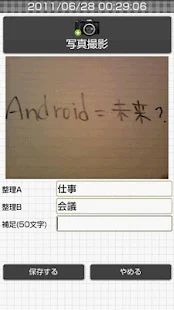 2011/06/28 00:29:06
写真撮影
Android=未来?
整理A
仕事
整理B
会議
補足(50文字)
保存する
やめる